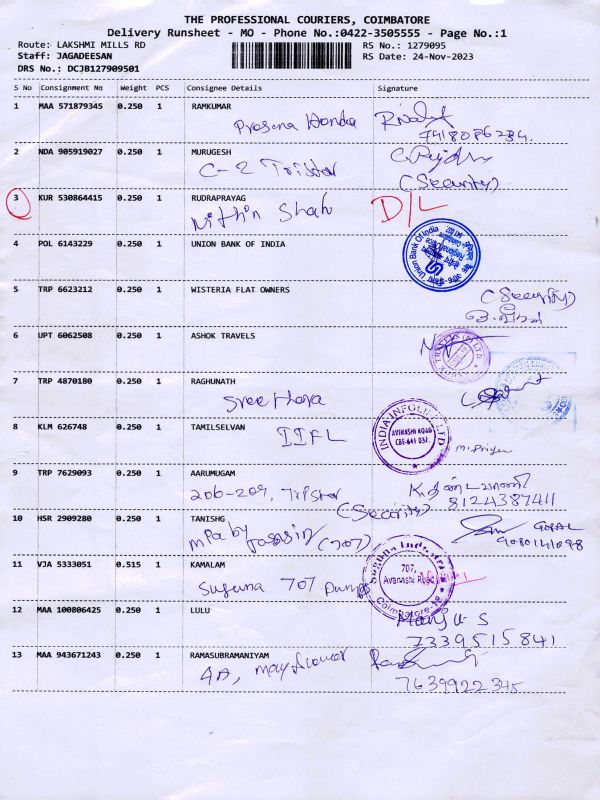 THE PROFESSIONAL COURIERS, COIMBATORE
Delivery Runsheet - MO - Phone No.:0422-3505555 - Page No.:1
Route: LAKSHMI MILLS RD
RS No.: 1279095
Staff: JAGADEESAN
RS Date: 24-Nov-2023
DRS No.: DCJB127909501
S No Consignment No Weight PCS Consignee Details Signature
1 MAA 571879345 0.250 1 RAMKUMAR
Honda
2 NDA 905919027 0.250 1 MURUGESH
C-2 Tristar
(Security)
3 KUR 530864415 0.250 1 RUDRAPRAYAG
Nithin Shah D/L
4 POL 6143229 0.250 1 UNION BANK OF INDIA
Union Bank Of India
5 TRP 6623212 0.250 1 WISTERIA FLAT OWNERS
(Security)
6 UPT 6062508 0.250 1 ASHOK TRAVELS
7 TRP 4870180 0.250 1 RAGHUNATH
8 KLM 626748 0.250 1 TAMILSELVAN
IIFL
INDIA INFOLINE LTD
AVINASHI ROAD
CBE-641 037.
M. Priya
9 TRP 7629093 0.250 1 AARUMUGAM
206-209, Tristar
8124387411
(Security)
10 HSR 2909280 0.250 1 TANISHG
GOPAL
(707)
11 VJA 5333051 0.515 1 KAMALAM
Suguna 707 Pumps
Suguna Industries
707,
Avanashi Road
Coimbatore
12 MAA 100806425 0.250 1 LULU
Manju S
7339515841
13 MAA 943671243 0.250 1 RAMASUBRAMANIYAM
4A, Mayflower
7639922345